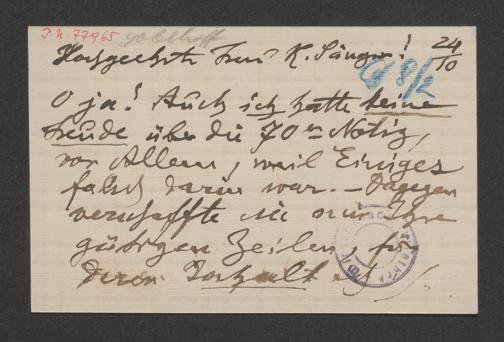 J.N. 77965
Hochgeehrter Herr K. Sänger! 24/10
O ja! Auch ich hatte keine
Freude über die 70er Notiz,
vor Allem, weil Einiges
falsch darin war. – Dagegen
verschaffte sie mir Ihre
gütigen Zeilen, für
deren